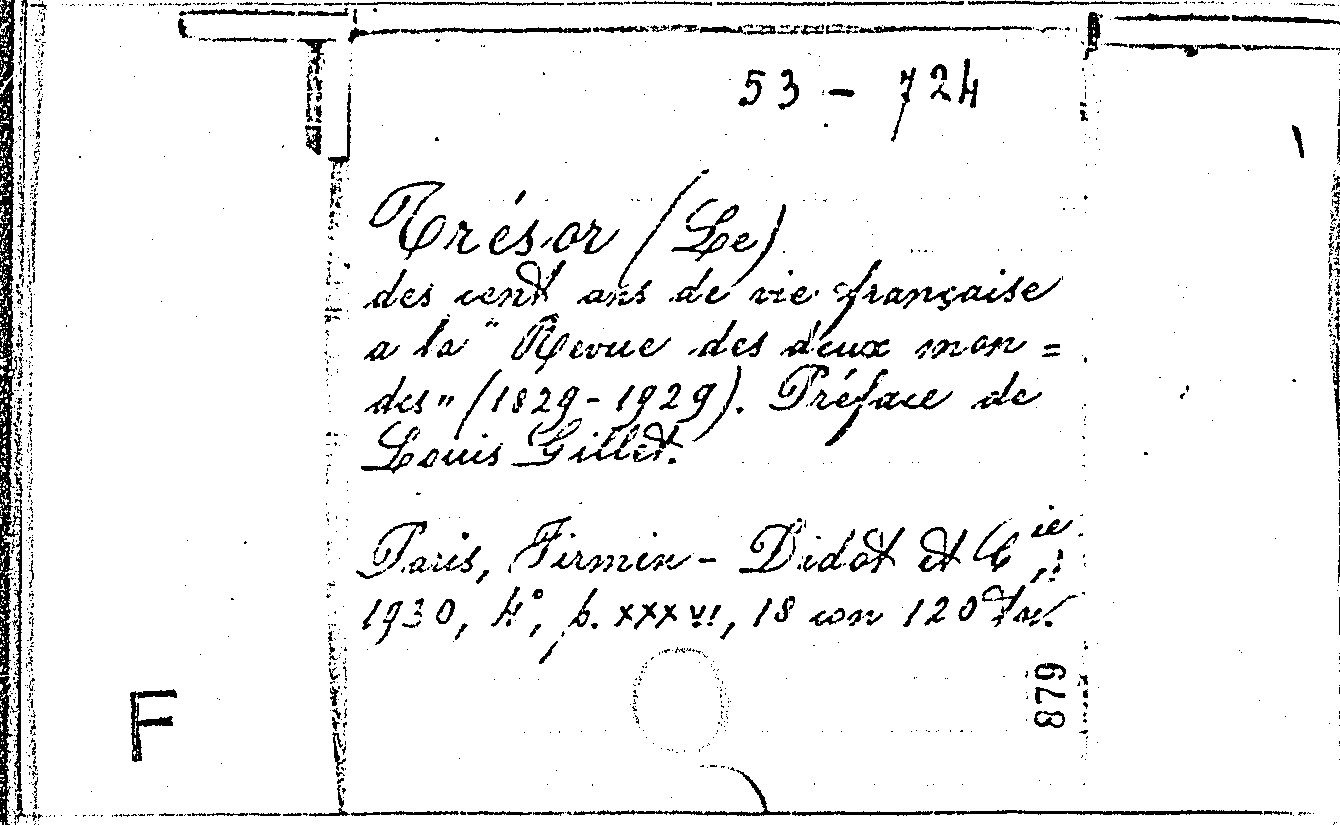 53 - 724
Trésor (Le)
des cent ans de vie française
a la "Revue des deux mon=
des" (1829-1929). Préface de
Louis Gillet.
Paris, Firmin-Didot et Cie,
1930, 4°, p. XXXVI, 18 con 120 tav.
879
F